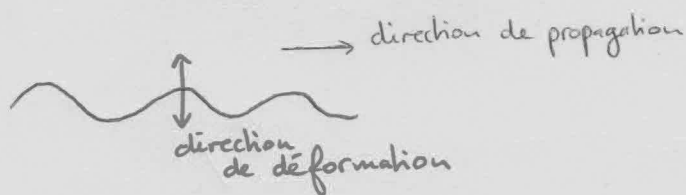 direction de propagation
direction
de déformation